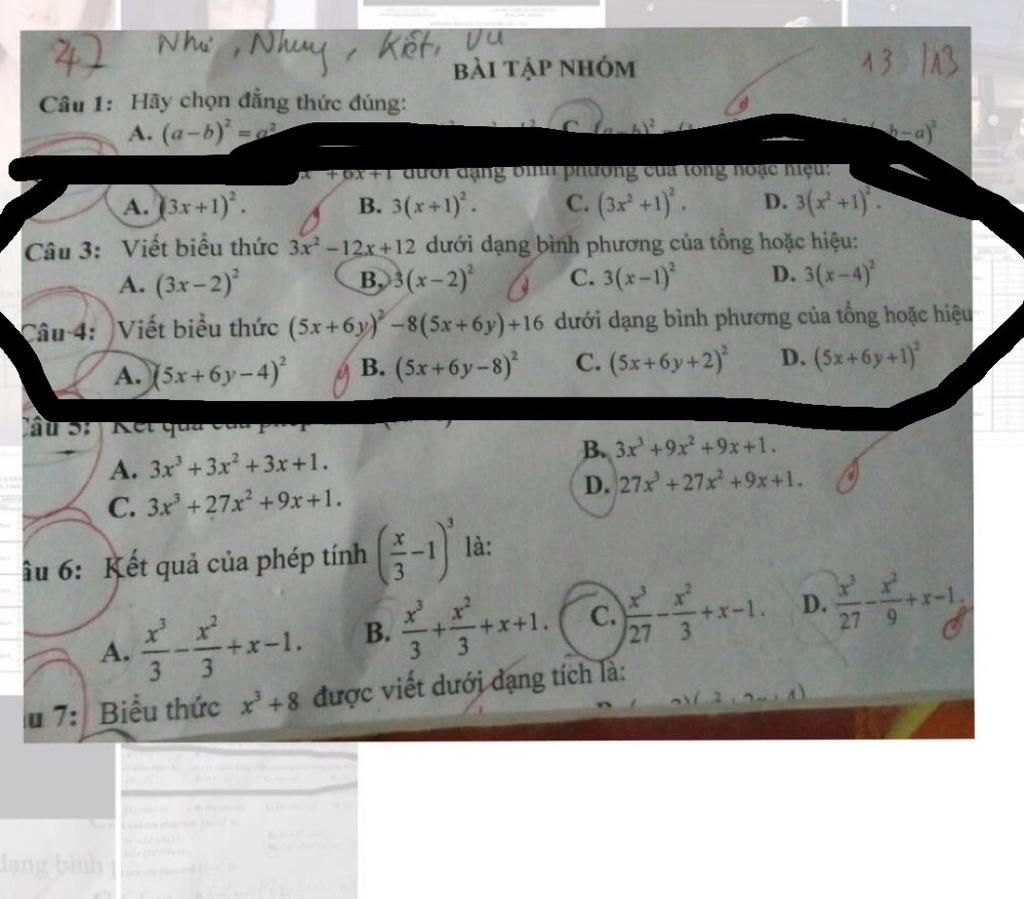 42 Như, Nhung, Kiệt, Vu
BÀI TẬP NHÓM 13/13
Câu 1: Hãy chọn đẳng thức đúng:
A. (a−b)² = a² C. b−a)²
x² +6x+1 dưới dạng bình phương của tổng hoặc hiệu:
A. (3x+1)². B. 3(x+1)². C. (3x²+1)². D. 3(x²+1)².
Câu 3: Viết biểu thức 3x²−12x+12 dưới dạng bình phương của tổng hoặc hiệu:
A. (3x−2)² B. 3(x−2)² C. 3(x−1)² D. 3(x−4)²
Câu 4: Viết biểu thức (5x+6y)²−8(5x+6y)+16 dưới dạng bình phương của tổng hoặc hiệu
A. (5x+6y−4)² B. (5x+6y−8)² C. (5x+6y+2)² D. (5x+6y+1)²
Câu 5: Kết quả của phép
A. 3x³+3x²+3x+1. B. 3x³+9x²+9x+1.
C. 3x³+27x²+9x+1. D. 27x³+27x²+9x+1.
âu 6: Kết quả của phép tính (x/3−1)³ là:
A. x³/3−x²/3+x−1. B. x³/3+x²/3+x+1. C. x³/27−x²/3+x−1. D. x³/27−x²/9+x−1.
u 7: Biểu thức x³+8 được viết dưới dạng tích là:
dạng bình